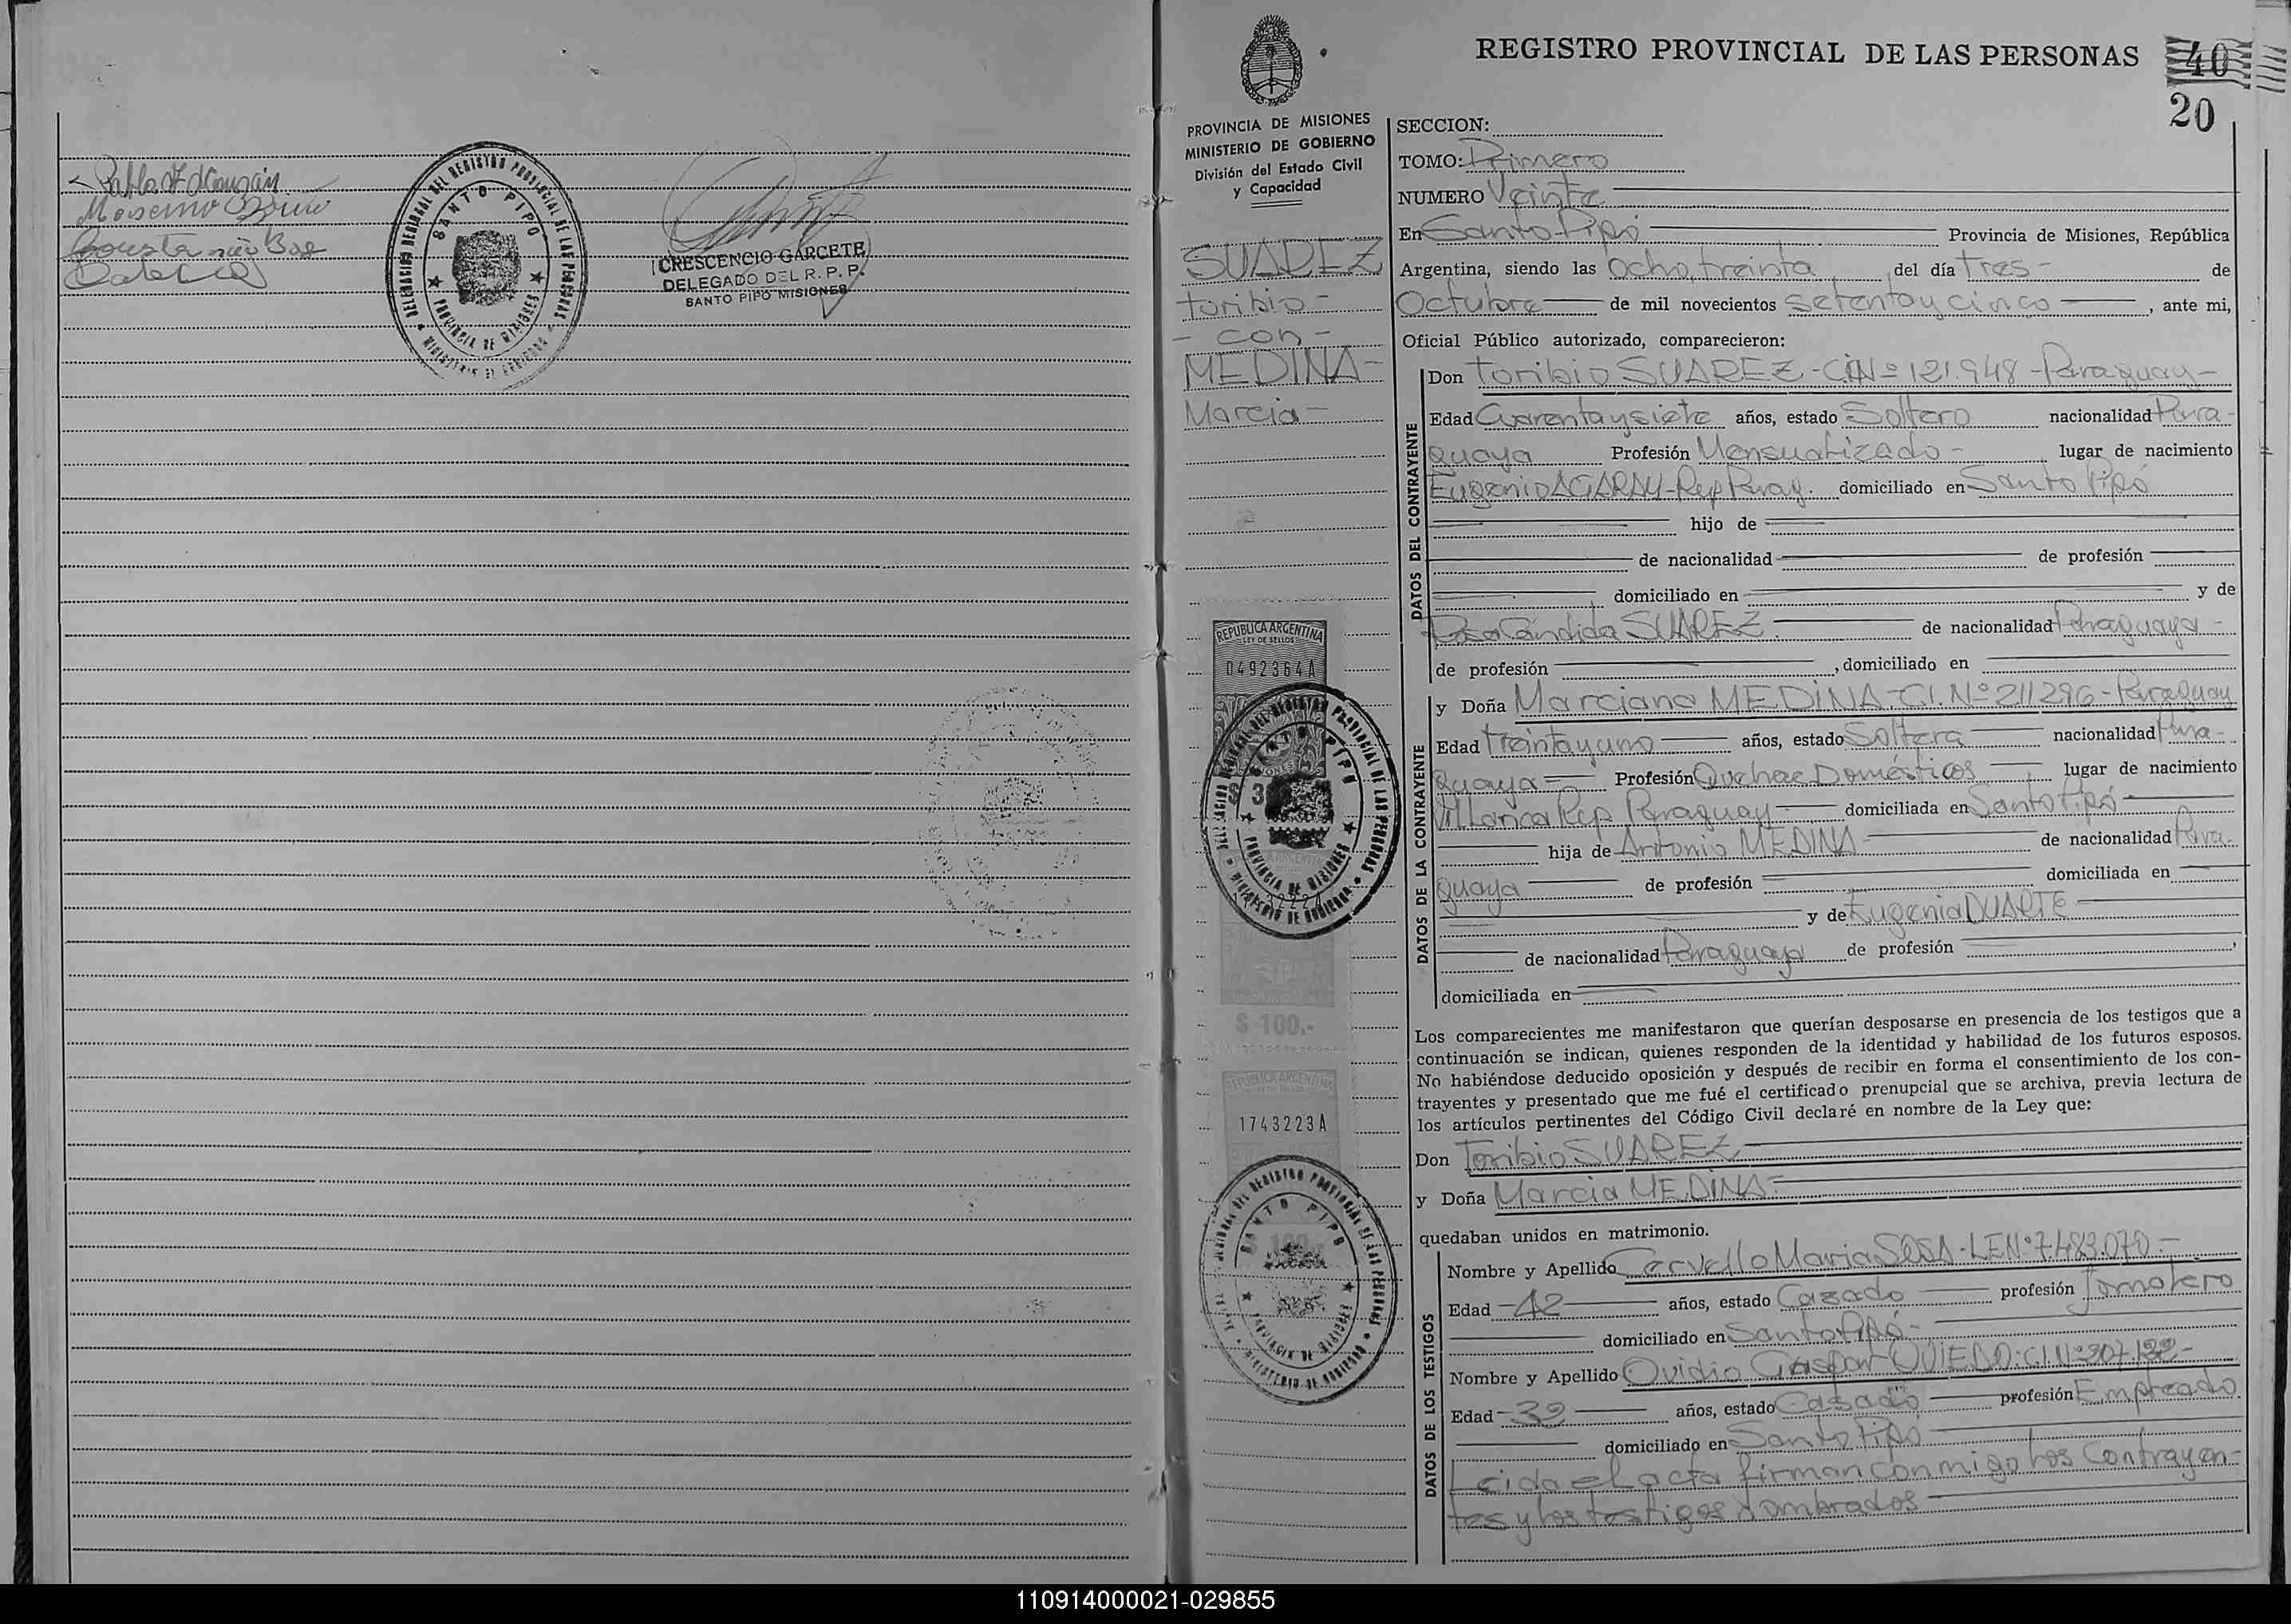 Moiseino
CRESCENCIO GARCETE
DELEGADO DEL R. P. P.
SANTO PIPO MISIONES
DELEGACION REGIONAL DEL REGISTRO PROVINCIAL DE LAS PERSONAS
SANTO PIPO
PROVINCIA DE MISIONES
MINISTERIO DE GOBIERNO
REGISTRO PROVINCIAL DE LAS PERSONAS
40
20
PROVINCIA DE MISIONES
MINISTERIO DE GOBIERNO
División del Estado Civil
y Capacidad
SUAREZ
Toribio -
- con -
MEDINA -
Marcia -
REPUBLICA ARGENTINA
LEY DE SELLOS
0492364A
$ 100.-
REPUBLICA ARGENTINA
1743223A
SECCION:
TOMO: Primero
NUMERO Veinte
En Santo Pipó Provincia de Misiones, República
Argentina, siendo las Ocho, treinta del día tres - de
Octubre de mil novecientos setenta y cinco, ante mi,
Oficial Público autorizado, comparecieron:
DATOS DEL CONTRAYENTE
Don Toribio SUAREZ - C.I.Nº 121.948 - Paraguay -
Edad Cuarenta y siete años, estado Soltero nacionalidad Para-
guaya Profesión Mensualizado - lugar de nacimiento
Eugenio AGARAY - Rep Parag. domiciliado en Santo Pipó
hijo de
de nacionalidad de profesión
domiciliado en y de
Rosa Cándida SUAREZ de nacionalidad Paraguaya -
de profesión , domiciliado en
DATOS DE LA CONTRAYENTE
y Doña Marciana MEDINA - C.I. Nº 211296 - Paraguay
Edad treinta y uno años, estado Soltera nacionalidad Para-
guaya Profesión Quehac Domésticos lugar de nacimiento
Villarica Rep Paraguay domiciliada en Santo Pipó
hija de Antonio MEDINA de nacionalidad Para-
guaya de profesión domiciliada en
y de Eugenia DUARTE
de nacionalidad Paraguaya de profesión ,
domiciliada en
Los comparecientes me manifestaron que querían desposarse en presencia de los testigos que a
continuación se indican, quienes responden de la identidad y habilidad de los futuros esposos.
No habiéndose deducido oposición y después de recibir en forma el consentimiento de los con-
trayentes y presentado que me fué el certificado prenupcial que se archiva, previa lectura de
los artículos pertinentes del Código Civil declaré en nombre de la Ley que:
Don Toribio SUAREZ
y Doña Marcia MEDINA
quedaban unidos en matrimonio.
DATOS DE LOS TESTIGOS
Nombre y Apellido Cervello Maria SOSA - L.E.Nº 7.483.070 -
Edad - 42 años, estado Casado profesión Jornalero
domiciliado en Santo Pipó -
Nombre y Apellido Ovidio Gaspar OVIEDO: C.I. Nº 307.122 -
Edad - 32 años, estado Casado profesión Empleado
domiciliado en Santo Pipó
Leida el acta firman conmigo los Contrayen-
tes y los testigos nombrados
110914000021-029855